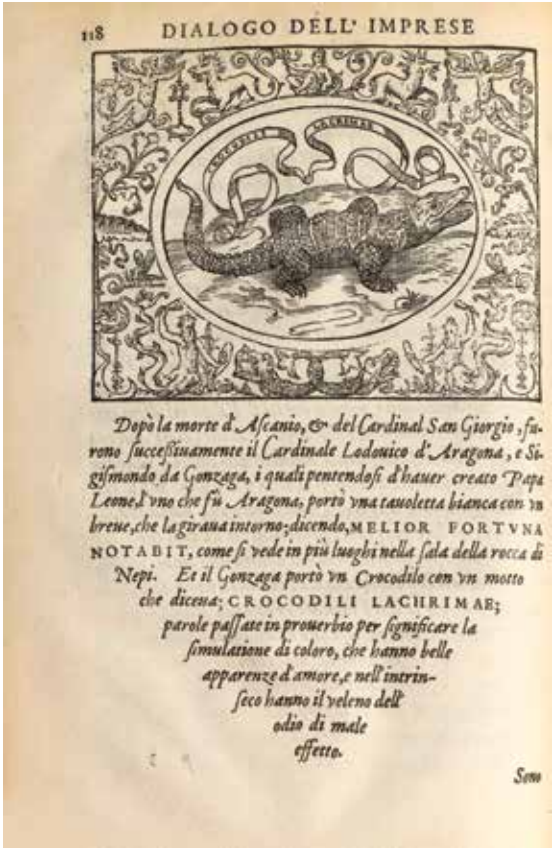 118 DIALOGO DELL' IMPRESE
CROCODILI LACRIMAE
Dopò la morte d'Ascanio, & del Cardinal San Giorgio, fu-
rono successiuamente il Cardinale Lodouico d'Aragona, e Si-
gismondo da Gonzaga, i quali pentendosi d'hauer creato Papa
Leone, l'vno che fù Aragona, portò vna tauoletta bianca con vn
breue, che la giraua intorno; dicendo, MELIOR FORTVNA
NOTABIT, come si vede in più luoghi nella sala della rocca di
Nepi. Et il Gonzaga portò vn Crocodilo con vn motto
che diceua; CROCODILI LACHRIMAE;
parole passate in prouerbio per significare la
simulatione di coloro, che hanno belle
apparenze d'amore, e nell'intrin-
seco hanno il veleno dell'
odio di male
effetto.
Sono